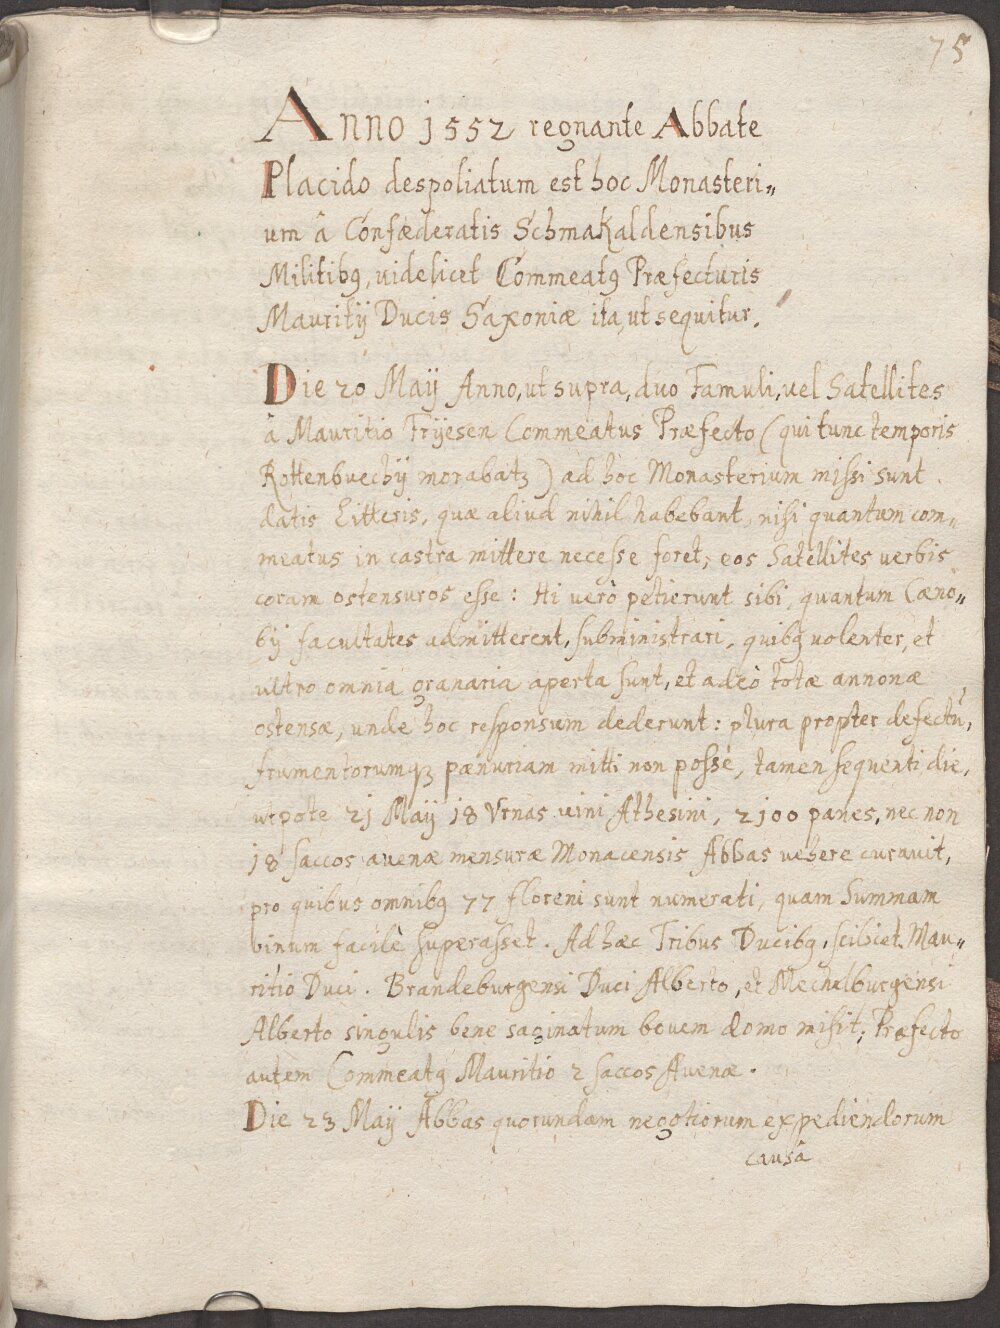 75
Anno 1552 regnante Abbate
Placido despoliatum est hoc Monasteri„
um â Confœderatis Schmakaldensibus
Militibq, videlicet Commeatq Præfecturis
Mauritij Ducis Saxoniæ ita, ut sequitur.
Die 20 Maij Anno, ut supra, duo Famuli, vel Satellites
â Mauritio Frijesen Commeatus Præfecto (qui tunc temporis
Rottenbuechij morabatꝫ) ad hoc Monasterium missi sunt
datis Litteris, quæ aliud nihil habebant, nisi quantum com„
meatus in castra mittere necesse foret, eos Satellites verbis
coram ostensuros esse: Hi verò petierunt sibi, quantum Cæno„
bij facultates admitterent, subministrari, quibq volenter, et
ultro omnia granaria aperta sunt, et adeò totæ annonæ
ostensæ, unde hoc responsum dederunt: plura propter defectũ,
frumentorumqꝫ pænuriam mitti non posse, tamen sequenti die,
utpote 21 Maij 18 Vrnas vini Athesini, 2100 panes, nec non
18 saccos avenæ mensuræ Monacensis Abbas vehere curavit,
pro quibus omnibq 77 floreni sunt numerati, quam Summam
vinum facilè superasset. Ad hæc Tribus Ducibq, scilicet Mau„
ritio Duci. Brandeburgensi Duci Alberto, et Mechelburgensi
Alberto singulis bene saginatum bovem domo misit; Præfecto
autem Commeatq Mauritio 2 saccos Avenæ.
Die 23 Maij Abbas quorundam negotiorum expediendorum
causâ